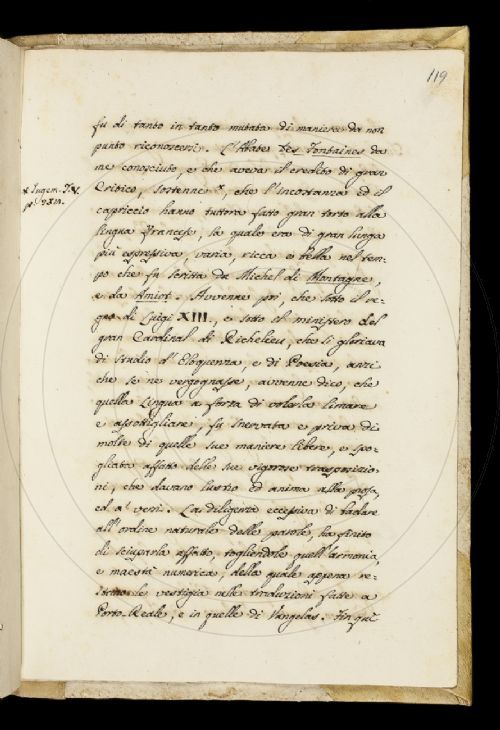 119
fu di tanto in tanto mutata di maniera da non
punto riconoscersi. L'Abate Des Fontaines da
me conosciuto, e che aveva il credito di gran
Critico, sostenne *, che l'incostanza ed il
capriccio hanno tuttora fatto gran torto alla
lingua Francese, la quale era di gran lunga
più espressiva, varia, ricca e bella nel tem-
po che fu scritta da Michel di Montagne,
e da Amiot. Avvenne poi, che sotto il re-
gno di Luigi XIII., e sotto il ministero del
gran Cardinal di Richelieu, che si gloriava
di studio d'Eloquenza, e di Poesia, anzi
che se ne vergognasse, avvenne dico, che
quella Lingua a forza di volerla limare
e assottigliare, fu snervata e priva di
molte di quelle sue maniere libere, e spo-
gliata affatto delle sue vigorose trasposizio-
ni, che davano lustro ed anima alla prosa,
ed a' versi. La diligenza eccessiva di badare
all'ordine naturale delle parole, ha finito
di sciuparla affatto, togliendole quell'armonia,
e maestà numerica, della quale appena re-
stano le vestigia nelle traduzioni fatte a
Porto-Reale, e in quelle di Vaugelas. Fin quì
* Jugem. T. V.